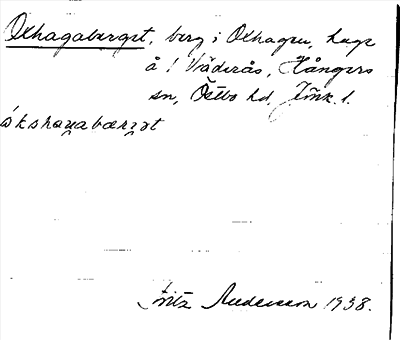 Oxhagaberget, berg i Oxhagen, hage
å ! Väderås, Hångers
sn, Östbo hd, Jönk. l.
ókshaga bærgt
Fritz Andersson 1938.